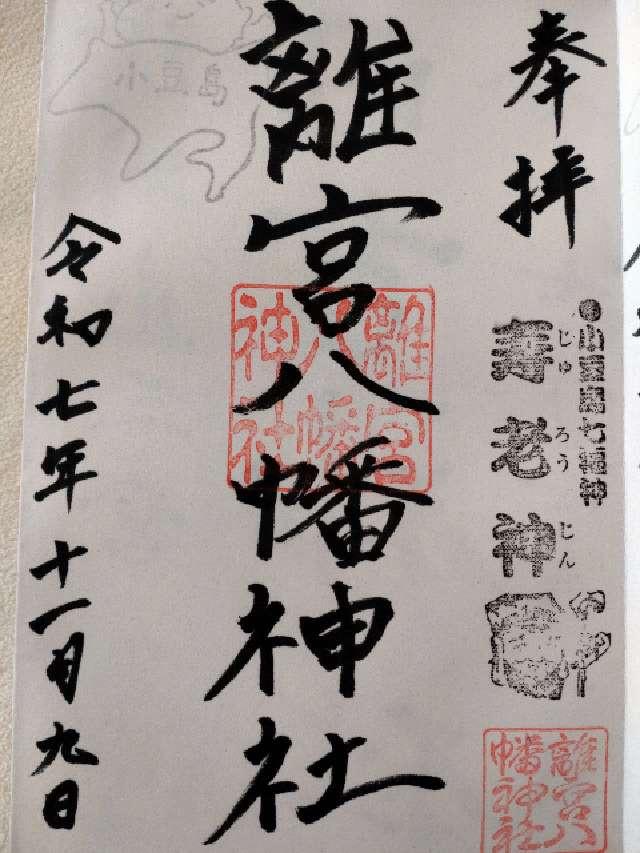 奉拝
小豆島七福神
寿老神
じゅろうじん
離宮八幡神社
離宮八幡神社
離宮八幡神社
小豆島
令和七年十一月九日